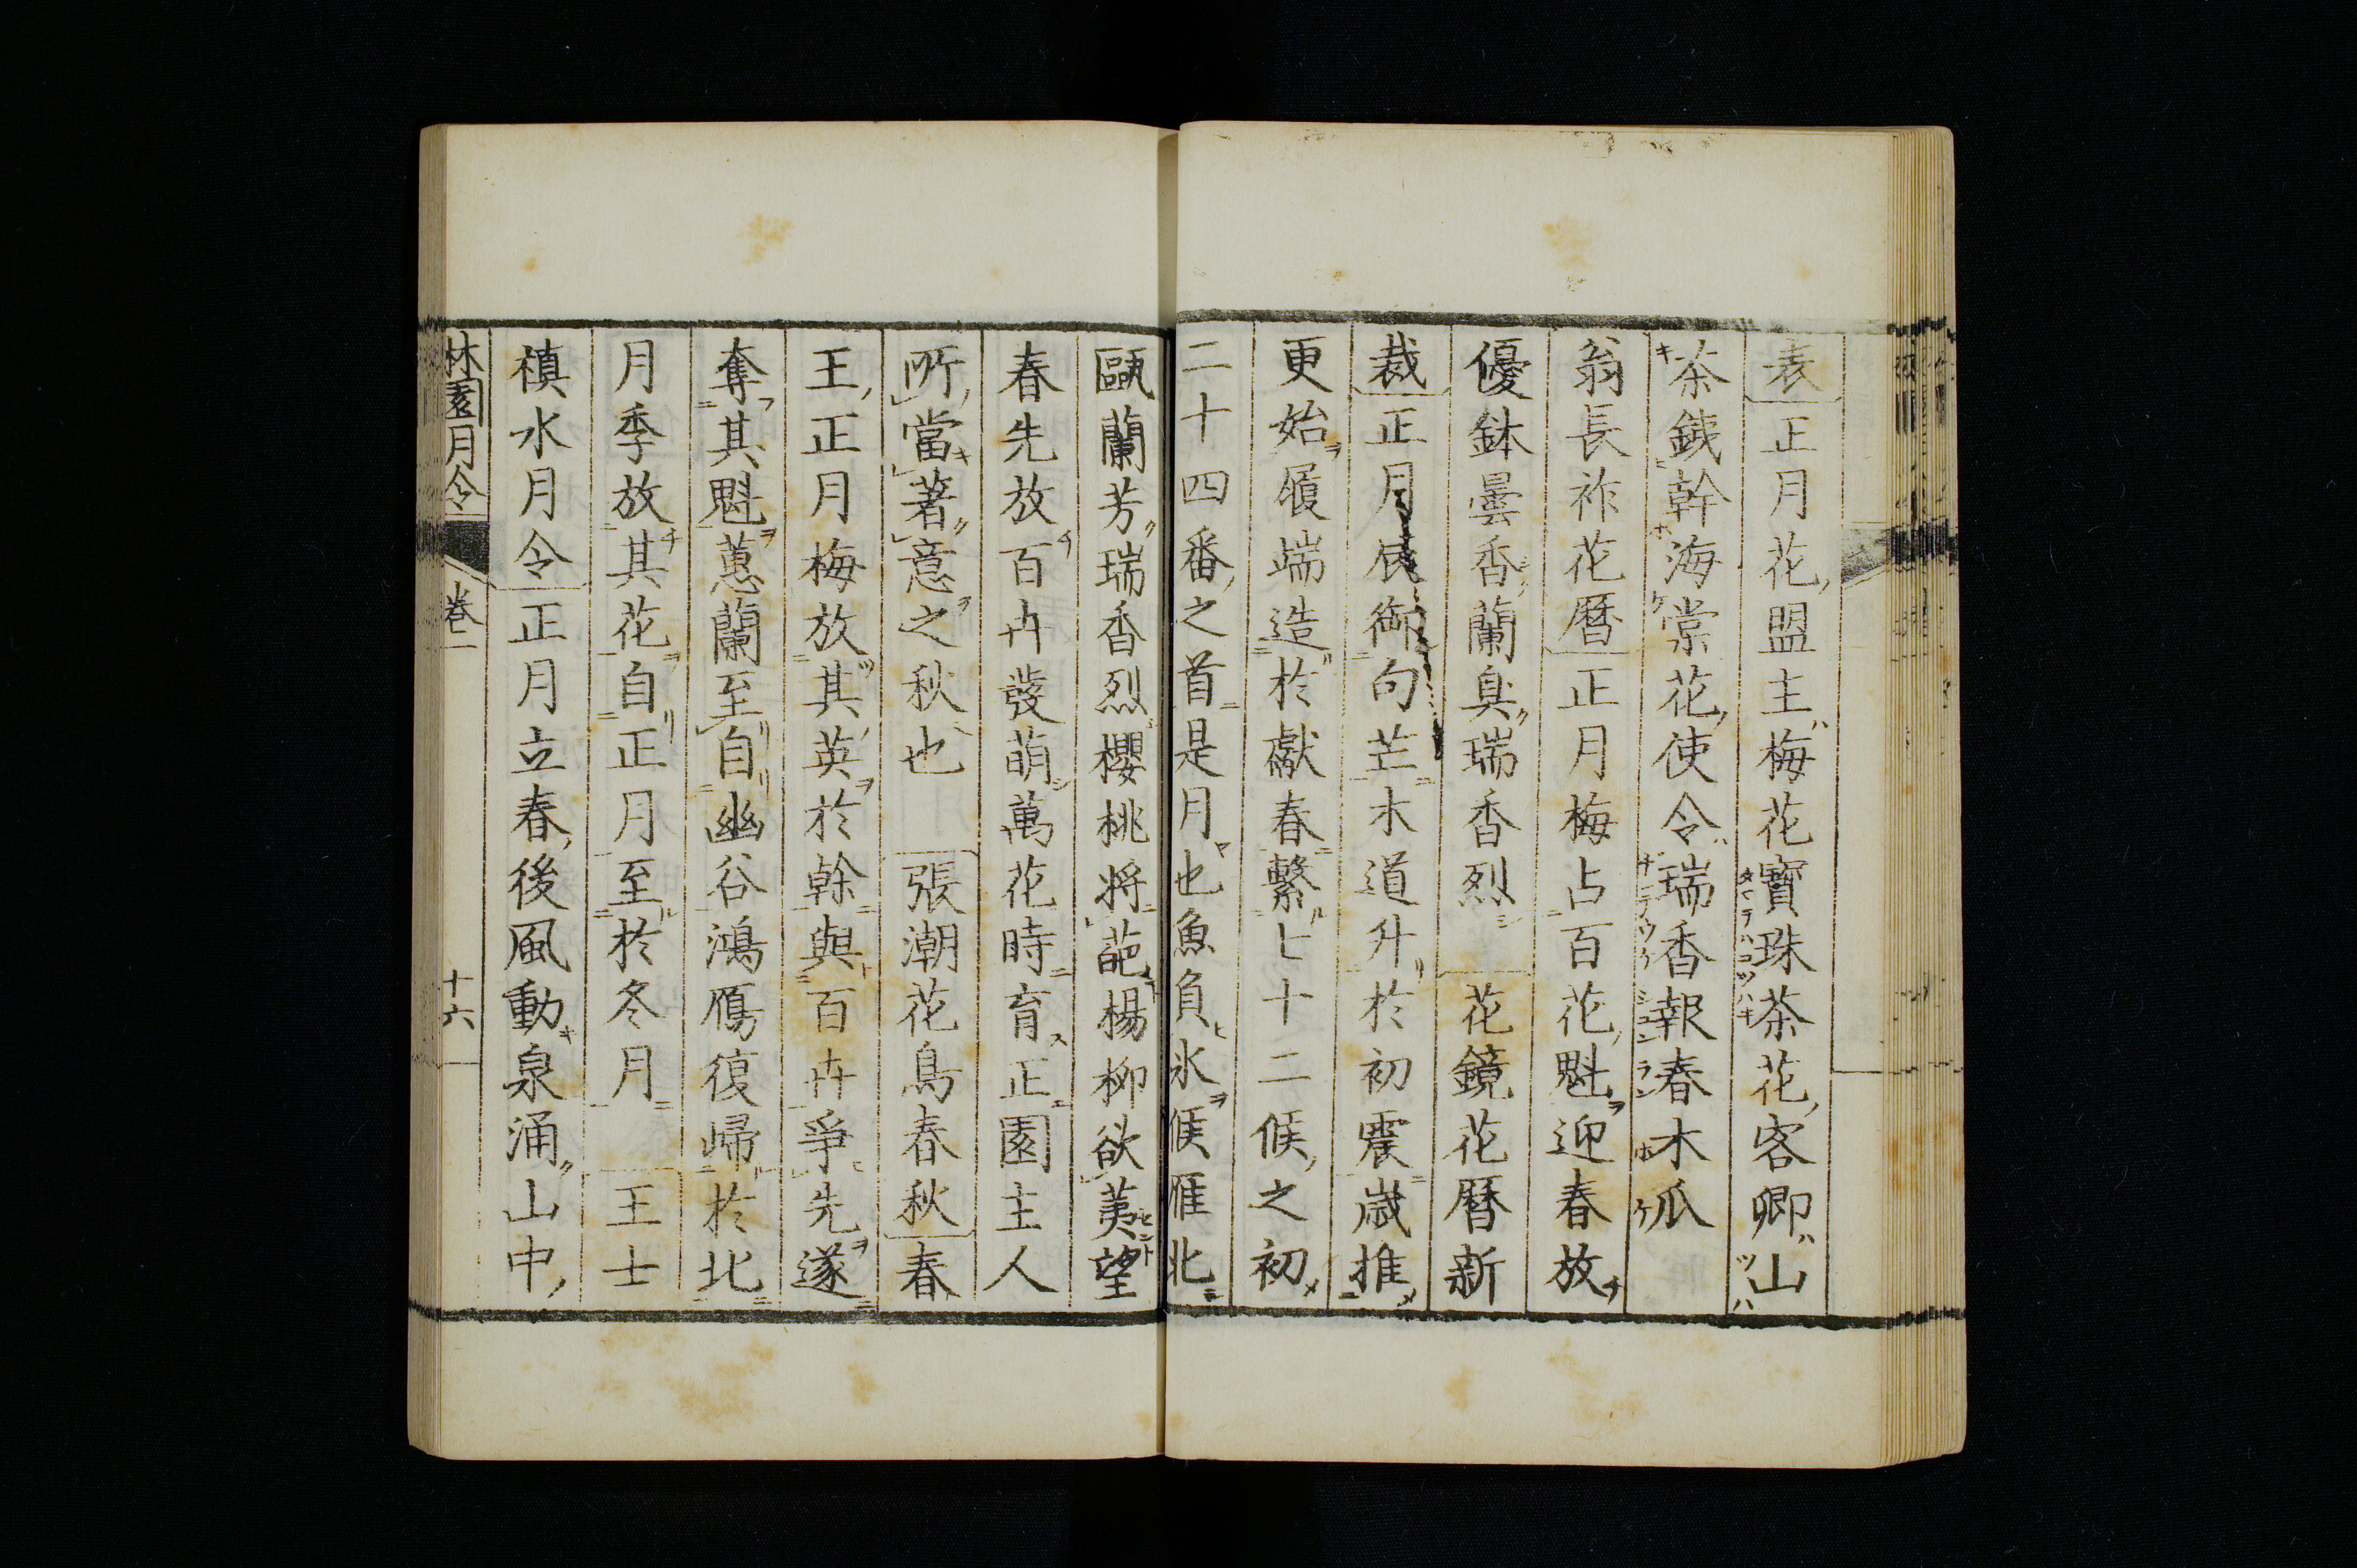 表正月花盟主梅花寶珠茶花客卿山
茶鉄幹海棠花使令瑞香報春木瓜
翁長祚花暦正月梅占百花魁迎春放
優鉢曇香蘭臭瑞香烈 花鏡花暦新
裁正月辰御句芒木道升於初震歳推
更始履端造於獻春繫七十二候之初
二十四番之首是月也魚負氷候雁北
甌蘭芳瑞香烈櫻桃将葩楊柳欲荑望
春先放百卉發萌萬花時育正園主人
所當著意之秋也 張潮花鳥春秋春
王正月梅放其英於幹與百卉爭先遂
奪其魁蕙蘭至自幽谷鴻鴈復歸於北
月季放其花自正月至於冬月 王士
禛水月令正月立春後風動泉涌山中
林園月令 巻一 十六